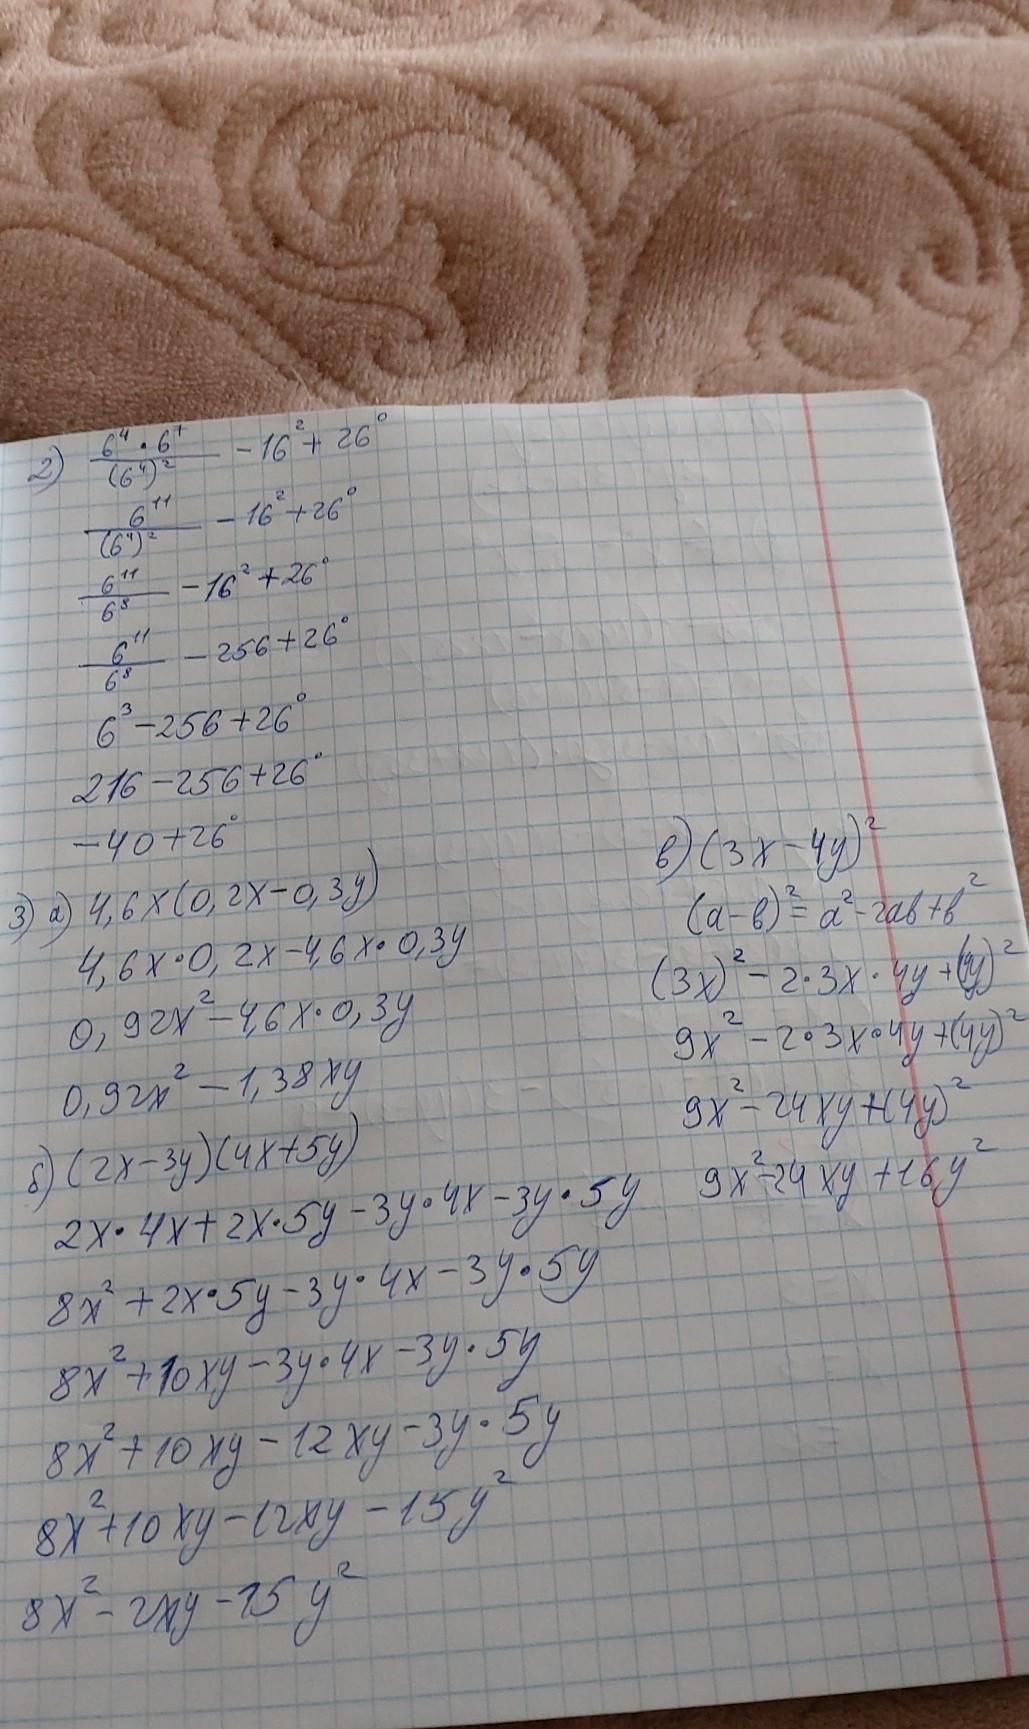 2) (6⁴ · 6⁷)/(6⁴)² - 16² + 26⁰
6¹¹/(6⁴)² - 16² + 26⁰
6¹¹/6⁸ - 16² + 26⁰
6¹¹/6⁸ - 256 + 26⁰
6³ - 256 + 26⁰
216 - 256 + 26⁰
-40 + 26⁰
3) а) 4,6x(0,2x - 0,3y)
4,6x · 0,2x - 4,6x · 0,3y
0,92x² - 4,6x · 0,3y
0,92x² - 1,38xy
б) (2x - 3y)(4x + 5y)
2x · 4x + 2x · 5y - 3y · 4x - 3y · 5y
8x² + 2x · 5y - 3y · 4x - 3y · 5y
8x² + 10xy - 3y · 4x - 3y · 5y
8x² + 10xy - 12xy - 3y · 5y
8x² + 10xy - 12xy - 15y²
8x² - 2xy - 15y²
в) (3x - 4y)²
(a - b)² = a² - 2ab + b²
(3x)² - 2 · 3x · 4y + (4y)²
9x² - 2 · 3x · 4y + (4y)²
9x² - 24xy + (4y)²
9x² - 24xy + 16y²